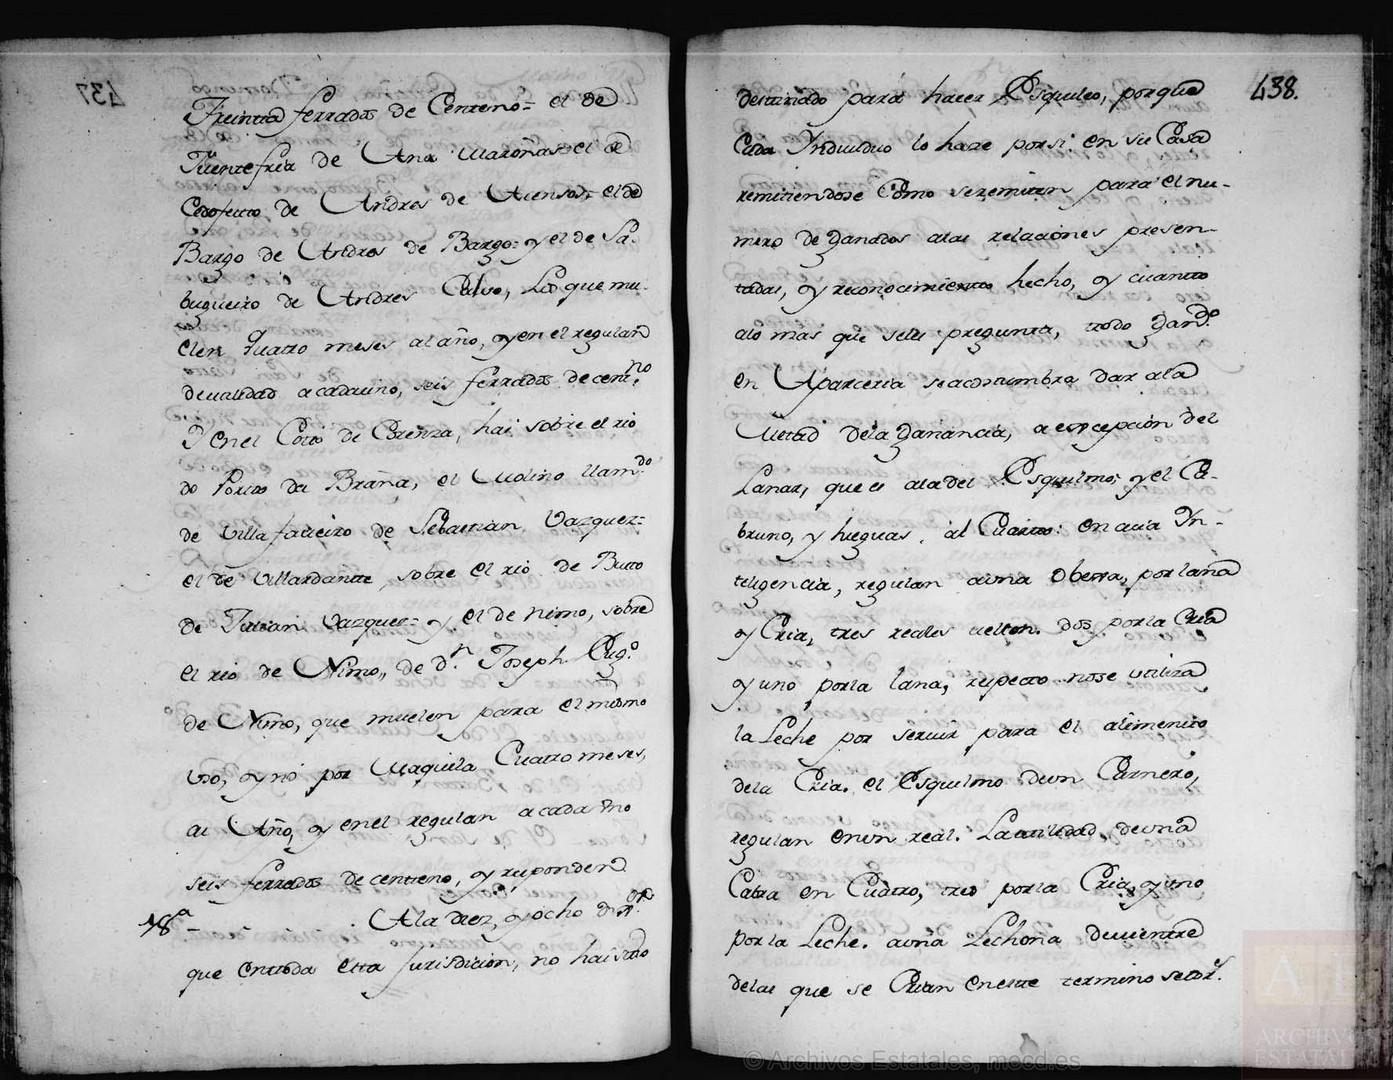 Treinta ferrados de Centeno = el de
Fuentefria de Ana Maroñas = el de
Cotofeito de Andres de Asenso = el de
Bargo de Andres de Bargo = y el de Sa-
bugueiro de Andres Calvo, Los que mu-
elen quatro meses al año, y en el regulan
de utilidad a cada uno, seis ferrados de centno
Y en el Coto de Borenza, hai sobre el rio
do Porto da Braña, el Molino llamdo
de Villafadeiro de Sebastian Vazquez =
el de Villardante sobre el rio de Buto
de Julian Vazquez = y el de Nimo, sobre
el rio de Nimo, de dn. Joseph Eugo.
de Nimo, que muelen para el mismo
uso, y no por Maquila Cuatro meses,
al Año, y en el regulan a cada uno
seis ferrados de centeno, y responden
18ª A la diez, y ocho
que en toda esta jurisdicion, no hai sitio
438.
destinado para hacer Esquileo, porque
Cada Yndividuo lo haze por si en su Casa
remitiendose Como se remiten para el nu-
mero de Ganados a las relaciones presen-
tadas, y reconocimiento hecho, y cuanto
a lo mas que se les pregunta, todo Gando.
en Aparceria se acostumbra dar a la
Metad de la Ganancia, a escepcion del
Lanar, que es a la del Esquilmo; y el Ca-
bruno, y hieguas, al Cuarto: en cuia Yn-
teligencia, regulan a una Obexa, por lana
y Cria, tres reales vellon. dos por la Cria
y uno por la lana, respecto no se utiliza
la Leche por servir para el alimento
de la Cria. el Esquilmo de un Carnero,
regulan en un real. La utilidad de una
Cabra en Cuatro, tres por la Cria, y uno
por la Leche. a una Lechona de vientre
de las que se Crian en este termino
© Archivos Estatales, mecd.es
ARCHIVOS
ESTATALES